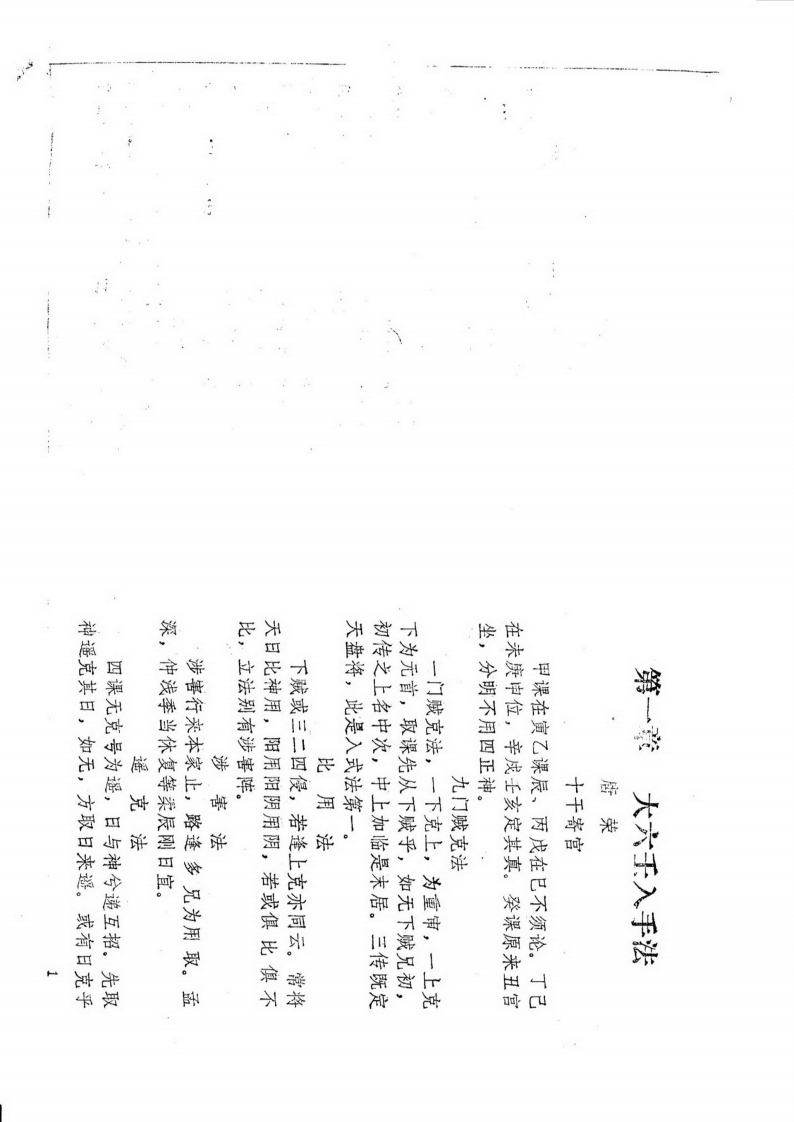 第一章 大六壬入手法
唐荣
十干寄宫
甲课在寅乙课辰、丙戊在巳不须论。丁己
在未庚申位，辛戌壬亥定其真。癸课原来丑宫
坐，分明不用四正神。
九门贼克法
一门贼克法，一下克上，为重审，一上克
下为元首，取课先从下贼乎，如无下贼兄初，
初传之上名中次，中上加临是末居。三传既定
天盘将，此是入式法第一。
比用法
下贼或三二四侵，若逢上克亦同云。常将
天日比神用，阳用阳阴用阴，若或俱比俱不
比，立法别有涉害陣。
涉害法
涉害行来本家止，路逢多兄为用取。孟
深，仲浅季当休复等柔辰刚日宜。
遥克法
四课无克号为遥，日与神兮递互招。先取
神遥克其日，如无，方取日来遥。或有日克乎
1